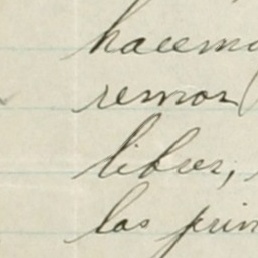 hacemo
remor
libres,
los prin